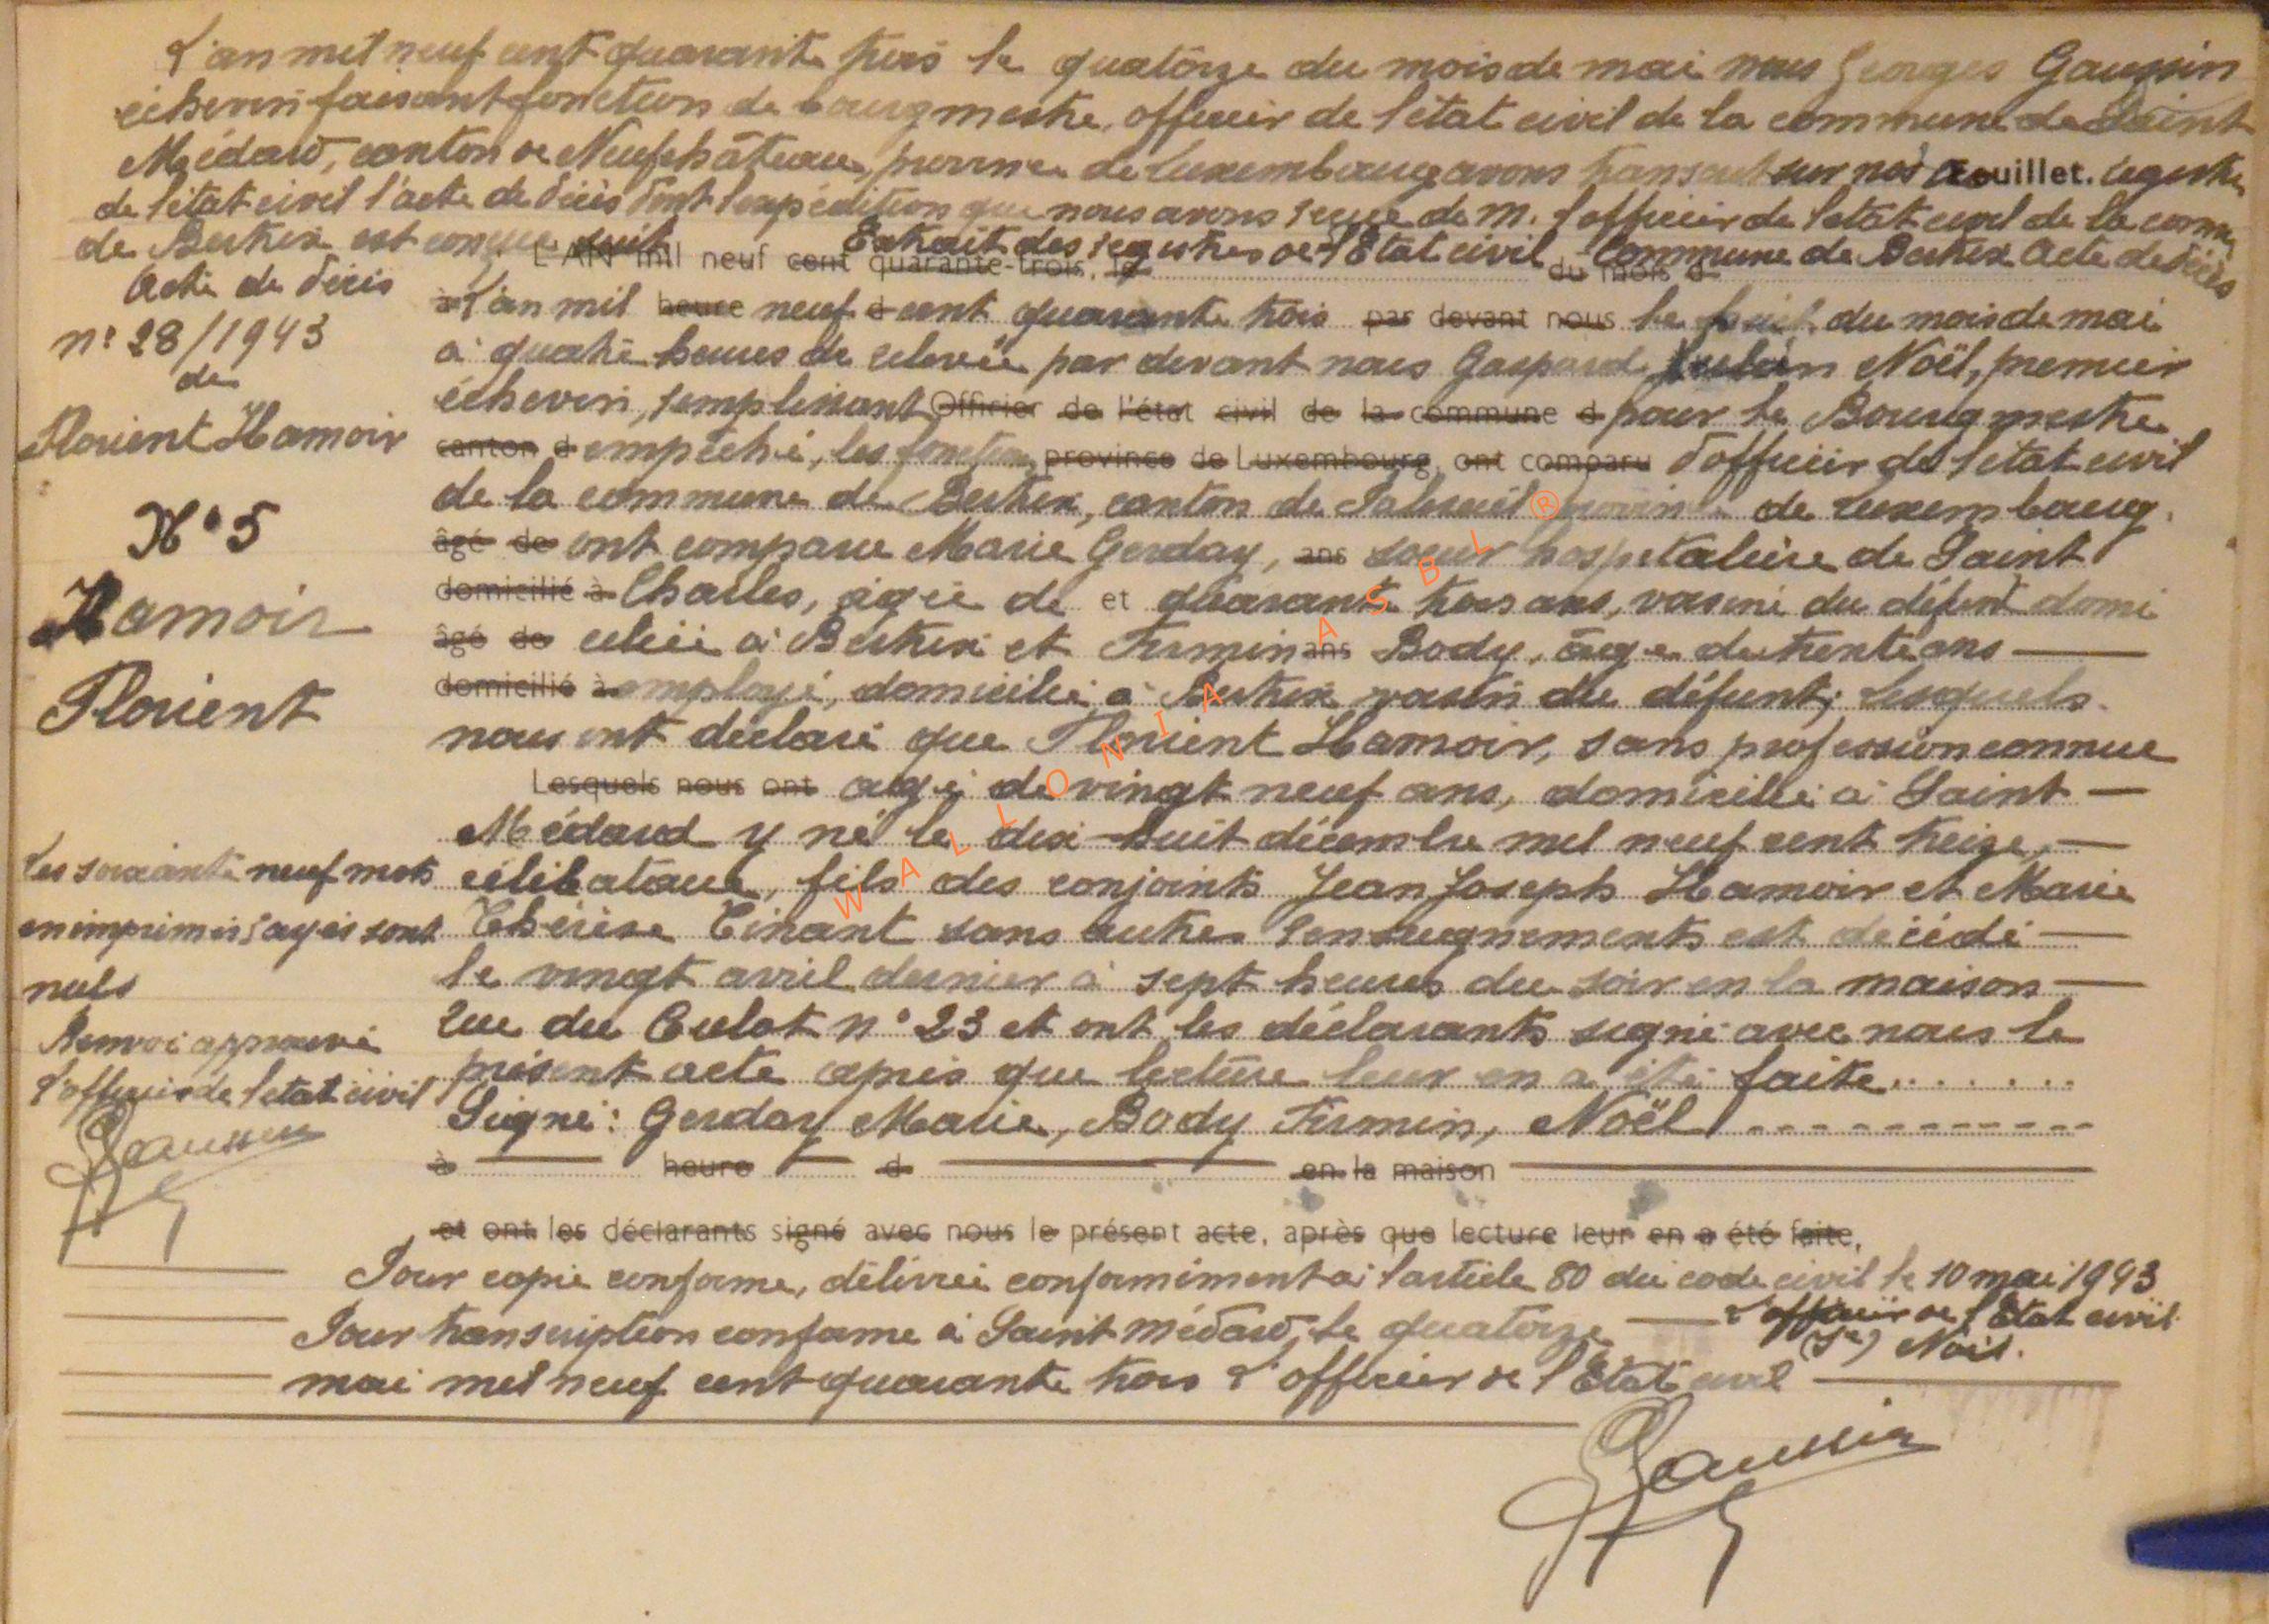 L'an mil neuf cent quarante trois le quatorze du mois de mai nous Georges Gaussin
échevin faisant fonction de bourgmestre, officier de l'état civil de la commune de Saint
Médard, canton de Neufchâteau, province de Luxembourg avons transcrit sur nos registres
de l'état civil l'acte de décès dont l'expédition que nous avons reçue de M. l'officier de l'état civil de la comm
de Bertrix est conçue suit Extrait des registres de l'Etat civil Commune de Bertrix Acte de décès
L'AN mil neuf cent quarante-trois, le du mois d
Acte de décès
n° 28/1943
de
Florient Hamoir
N° 5
Hamoir
Florient
Les soixante neuf mots
en imprimés rayés sont
nuls
Renvoi approuvé
L'officier de l'état civil
Gaussin
à L'an mil heure neuf d cent quarante trois par devant nous le huit du mois de mai
à quatre heures de relevée par devant nous Gaspard Noël, premier
échevin, remplissant Officier de l'état civil de la commune d pour le Bourgmestre
canton d empêché, les fonctions province de Luxembourg, ont comparu d'officier de l'état civil
de la commune de Bertrix, canton de Paliseul province de Luxembourg.
âgé de ont comparu Marie Gerday, ans soeur hospitalière de Saint
domicilié à Charles, agée de et quarante trois ans, voisine du défunt domi
âgé de ciliée à Bertrix et Firmin ans Body, âgé de trente ans
domicilié à employé, domicilié à Bertrix voisin du défunt; lesquels
nous ont déclaré que Florient Hamoir, sans profession connue
Lesquels nous ont agé de vingt neuf ans, domicilié à Saint
Médard y né le dix-huit décembre mil neuf cent treize,
célibataire, fils des conjoints Jean Joseph Hamoir et Marie
Thérèse Tinant sans autres renseignements est décédé
le vingt avril dernier à sept heures du soir en la maison
rue du Culot n° 23 et ont les déclarants signé avec nous le
présent acte après que lecture leur en a été faite.......
Signé: Gerday Marie, Body Firmin, Noël
à heure d en la maison
et ont les déclarants signé avec nous le présent acte, après que lecture leur en a été faite,
Pour copie conforme, délivrée conformément à l'article 80 du code civil le 10 mai 1943
L'officier de l'Etat civil
(Sé) Noël.
Pour transcription conforme à Saint Médard, le quatorze
mai mil neuf cent quarante trois L'officier de l'Etat civil
Gaussin
WALLONIA ASBL ®